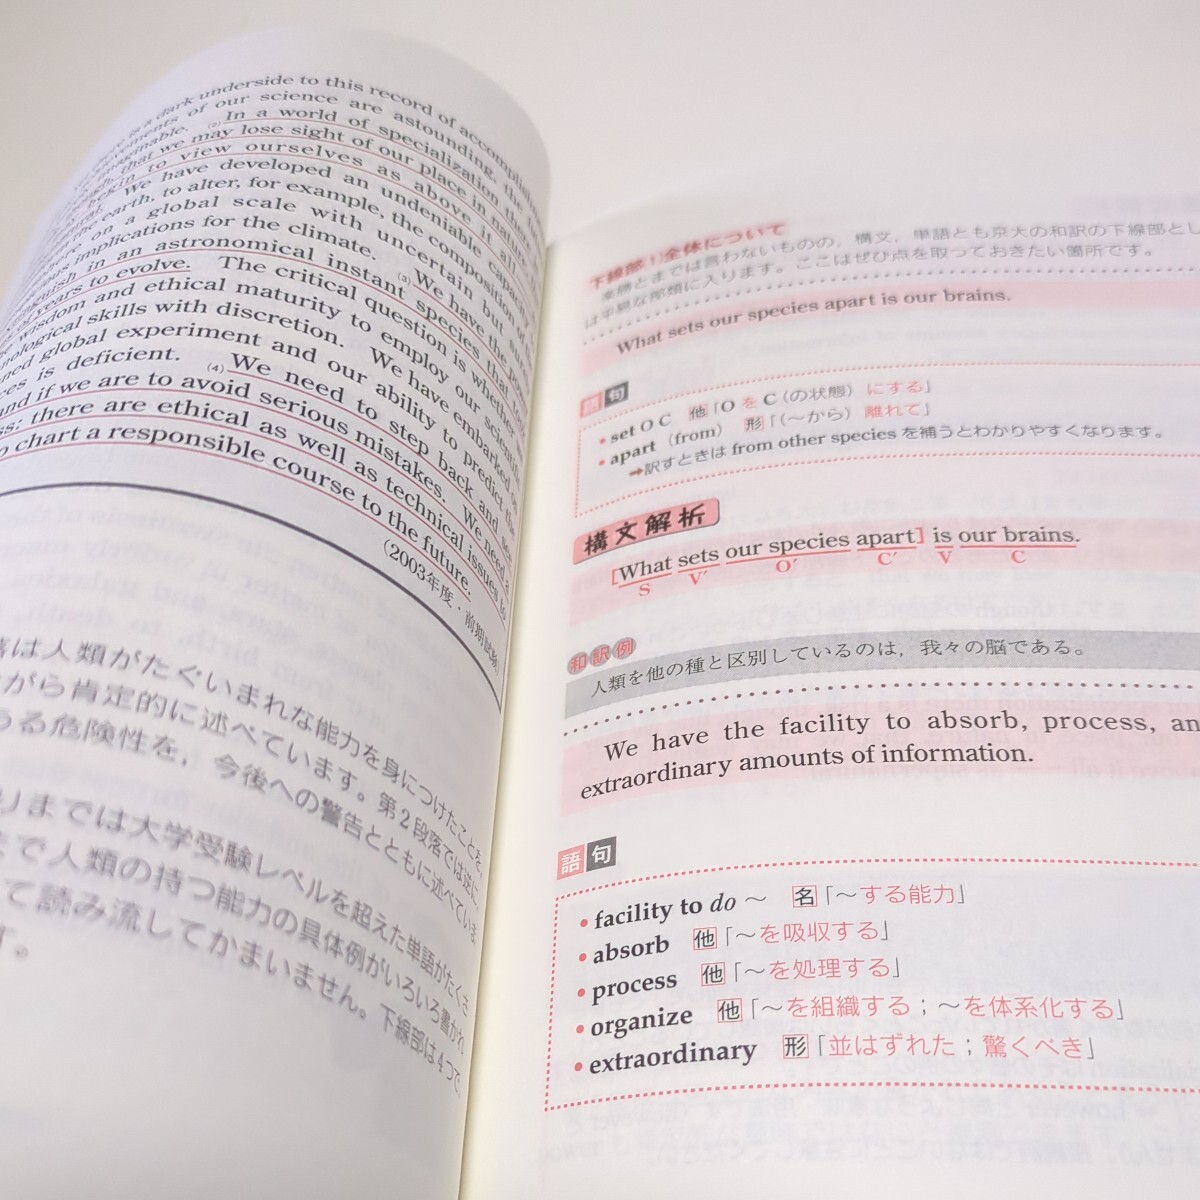 is a dark underside to this record of
of our science are astounding, the
imaginable. (2) In a world of specialization there
that we may lose sight of our place in nature,
begin to view ourselves as above it all
We have developed an undeniable capacity
the earth, to alter, for example, the composition of the
on a global scale with uncertain but
implications for the climate. (3) We have the power
in an astronomical instant species that
of years to evolve. The critical question is whether
wisdom and ethical maturity to employ our scientific
skills with discretion. We have embarked on
global experiment and our ability to predict the
is deficient. (4) We need to step back and
and if we are to avoid serious mistakes. We need a
there are ethical as well as technical issues to
chart a responsible course to the future.
(2003年度・前期試験)
は人類がたぐいまれな能力を身につけたことを,
がら肯定的に述べています。第2段落では逆に,
ある危険性を, 今後への警告とともに述べている
までは大学受験レベルを超えた単語がたくさ
で人類の持つ能力の具体例がいろいろ書かれ
て読み流してかまいません。下線部は4つで,
す。
下線部(1)全体について
楽勝とまでは言わないものの, 構文, 単語とも京大の和訳の下線部とし
は平易な部類に入ります。ここはぜひ点を取っておきたい箇所です。
What sets our species apart is our brains.
語句
• set O C 他「O を C (の状態) にする」
• apart (from) 形「(〜から) 離れて」
➡訳すときは from other species を補うとわかりやすくなります。
構文解析
[What sets our species apart] is our brains.
S V′ O′ C′ V C
和訳例
人類を他の種と区別しているのは, 我々の脳である。
We have the facility to absorb, process, an
extraordinary amounts of information.
語句
• facility to do 〜 名「〜する能力」
• absorb 他「〜を吸収する」
• process 他「〜を処理する」
• organize 他「〜を組織する ; 〜を体系化する」
• extraordinary 形「並はずれた ; 驚くべき」